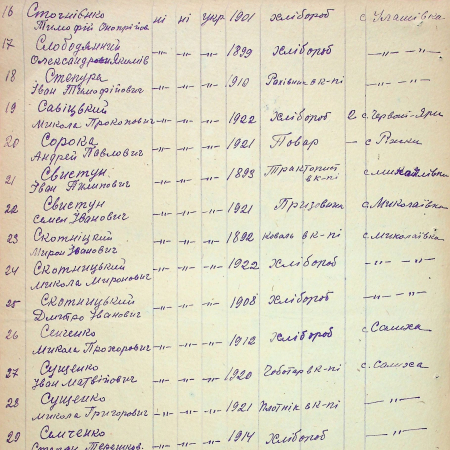 16 Стогнієнко ні ні укр 1901 хлібороб с. Улашівка
Тимофій Онопрійов
17 Слободяний -"- -"- -"- 1899 хлібороб -"-
Олександр Якимів
18 Степура -"- -"- -"- 1910 Рахівник в к-пі -"-
Іван Тимофійович
19 Савіцький -"- -"- -"- 1922 Хлібороб с. Червоний Яр
Микола Прокопович
20 Сорока -"- -"- -"- 1921 Повар — с. Ріжки
Андрей Павлович
21 Свистун -"- -"- -"- 1893 Тракторист
Іван Пилипович в к-пі
22 Свистун -"- -"- -"- 1921 Призовник с Миколаївка
Семен Іванович
23 Скотніцкий -"- -"- -"- 1892 Коваль в к-пі с. Миколаївка
Мирон Іванович
24 Скотницький -"- -"- -"- 1922 Хлібороб -"-
Микола Миронович
25 Скотницький -"- -"- -"- 1908 Хлібороб -"-
Дмитро Іванович
26 Сенченко -"- -"- -"- 1912 Хлібороб
Микола Прохорович
27 Сущенко -"- -"- -"- 1920 Чоботар в к-пі
Іван Матвійович
28 Сущенко -"- -"- -"- 1921 Плотнік в к-пі -"-
Микола Григорович
29 Семченко -"- -"- -"- 1914 Хлібороб -"-
Степан